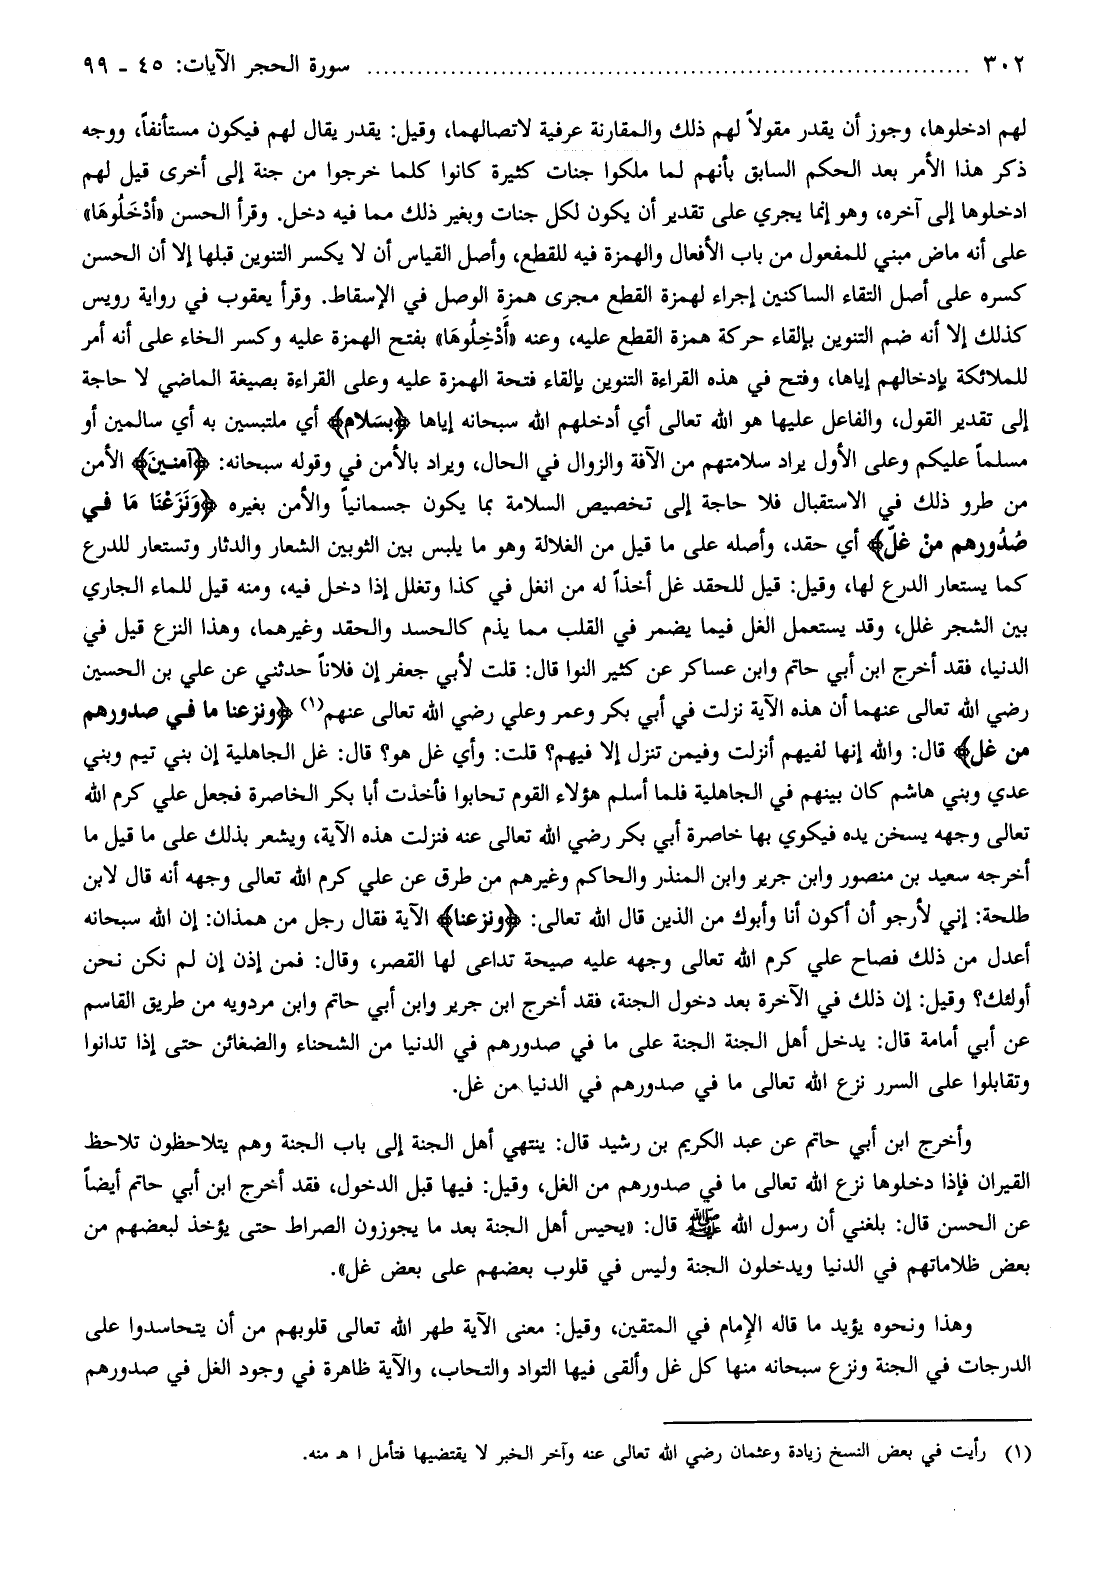 ٣٠٢ ........................................................................ سورة الحجر الآيات: ٤٥ ـ ٩٩
لهم ادخلوها، وجوز أن يقدر مقولاً لهم ذلك والمقارنة عرفية لاتصالهما، وقيل: يقدر يقال لهم فيكون مستأنفاً، ووجه
ذكر هذا الأمر بعد الحكم السابق بأنهم لما ملكوا جنات كثيرة كانوا كلما خرجوا من جنة إلى أخرى قيل لهم
ادخلوها إلى آخره، وهو إنما يجري على تقدير أن يكون لكل جنات وبغير ذلك مما فيه دخل. وقرأ الحسن «أدْخَلُوهَا»
على أنه ماض مبني للمفعول من باب الأفعال والهمزة فيه للقطع، وأصل القياس أن لا يكسر التنوين قبلها إلا أن الحسن
كسره على أصل التقاء الساكنين إجراء لهمزة القطع مجرى همزة الوصل في الإسقاط. وقرأ يعقوب في رواية رويس
كذلك إلا أنه ضم التنوين بإلقاء حركة همزة القطع عليه، وعنه «أَدْخِلُوهَا» بفتح الهمزة عليه وكسر الخاء على أنه أمر
للملائكة بإدخالهم إياها، وفتح في هذه القراءة التنوين بإلقاء فتحة الهمزة عليه وعلى القراءة بصيغة الماضي لا حاجة
إلى تقدير القول، والفاعل عليها هو الله تعالى أي أدخلهم الله سبحانه إياها ﴿بسَلام﴾ أي ملتبسين به أي سالمين أو
مسلماً عليكم وعلى الأول يراد سلامتهم من الآفة والزوال في الحال، ويراد بالأمن في وقوله سبحانه: ﴿آمنـينَ﴾ الأمن
من طرو ذلك في الاستقبال فلا حاجة إلى تخصيص السلامة بما يكون جسمانياً والأمن بغيره ﴿وَنَزَعْنَا مَا فـي
صُدُورهم منْ غلّ﴾ أي حقد، وأصله على ما قيل من الغلالة وهو ما يلبس بين الثوبين الشعار والدثار وتستعار للدرع
كما يستعار الدرع لها، وقيل: قيل للحقد غل أخذاً له من انغل في كذا وتغلل إذا دخل فيه، ومنه قيل للماء الجاري
بين الشجر غلل، وقد يستعمل الغل فيما يضمر في القلب مما يذم كالحسد والحقد وغيرهما، وهذا النزع قيل في
الدنيا، فقد أخرج ابن أبي حاتم وابن عساكر عن كثير النوا قال: قلت لأبي جعفر إن فلاناً حدثني عن علي بن الحسين
رضي الله تعالى عنهما أن هذه الآية نزلت في أبي بكر وعمر وعلي رضي الله تعالى عنهم(١) ﴿ونزعنا ما فـي صدورهم
من غل﴾ قال: والله إنها لفيهم أنزلت وفيمن تنزل إلا فيهم؟ قلت: وأي غل هو؟ قال: غل الجاهلية إن بني تيم وبني
عدي وبني هاشم كان بينهم في الجاهلية فلما أسلم هؤلاء القوم تحابوا فأخذت أبا بكر الخاصرة فجعل علي كرم الله
تعالى وجهه يسخن يده فيكوي بها خاصرة أبي بكر رضي الله تعالى عنه فنزلت هذه الآية، ويشعر بذلك على ما قيل ما
أخرجه سعيد بن منصور وابن جرير وابن المنذر والحاكم وغيرهم من طرق عن علي كرم الله تعالى وجهه أنه قال لابن
طلحة: إني لأرجو أن أكون أنا وأبوك من الذين قال الله تعالى: ﴿ونزعنا﴾ الآية فقال رجل من همذان: إن الله سبحانه
أعدل من ذلك فصاح علي كرم الله تعالى وجهه عليه صيحة تداعى لها القصر، وقال: فمن إذن إن لم نكن نحن
أولئك؟ وقيل: إن ذلك في الآخرة بعد دخول الجنة، فقد أخرج ابن جرير وابن أبي حاتم وابن مردويه من طريق القاسم
عن أبي أمامة قال: يدخل أهل الجنة الجنة على ما في صدورهم في الدنيا من الشحناء والضغائن حتى إذا تدانوا
وتقابلوا على السرر نزع الله تعالى ما في صدورهم في الدنيا من غل.
وأخرج ابن أبي حاتم عن عبد الكريم بن رشيد قال: ينتهي أهل الجنة إلى باب الجنة وهم يتلاحظون تلاحظ
القيران فإذا دخلوها نزع الله تعالى ما في صدورهم من الغل، وقيل: فيها قبل الدخول، فقد أخرج ابن أبي حاتم أيضاً
عن الحسن قال: بلغني أن رسول الله ﷺ قال: «يحيس أهل الجنة بعد ما يجوزون الصراط حتى يؤخذ لبعضهم من
بعض ظلاماتهم في الدنيا ويدخلون الجنة وليس في قلوب بعضهم على بعض غل».
وهذا ونحوه يؤيد ما قاله الإِمام في المتقين، وقيل: معنى الآية طهر الله تعالى قلوبهم من أن يتحاسدوا على
الدرجات في الجنة ونزع سبحانه منها كل غل وألقى فيها التواد والتحاب، والآية ظاهرة في وجود الغل في صدورهم
(١) رأيت في بعض النسخ زيادة وعثمان رضي الله تعالى عنه وآخر الخبر لا يقتضيها فتأمل ا هـ منه.